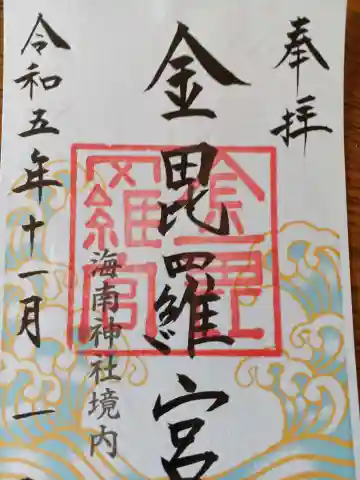 奉拝
金毘羅宮
海南神社境内
令和五年十一月一